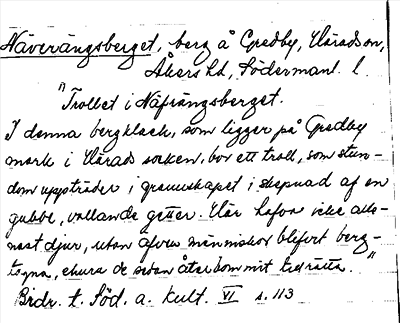 Näverängsberget, berg å Gredby, Härads sn,
Åkers hd, Södermanl. l.
"Trollet i Näfrängsberget.
I denna bergklack, som ligger på Gredby
mark i Härads socken, bor ett troll, som stun-
dom uppträder i granskapet i skepnad af en
gubbe, vallande getter. Här hafva icke alle-
nast djur, utan äfven människor blifvit berg-
tagna, ehuru de sedan återkommit tillrätta."
Bidr. t. Söd. a. Kult. VI s. 113